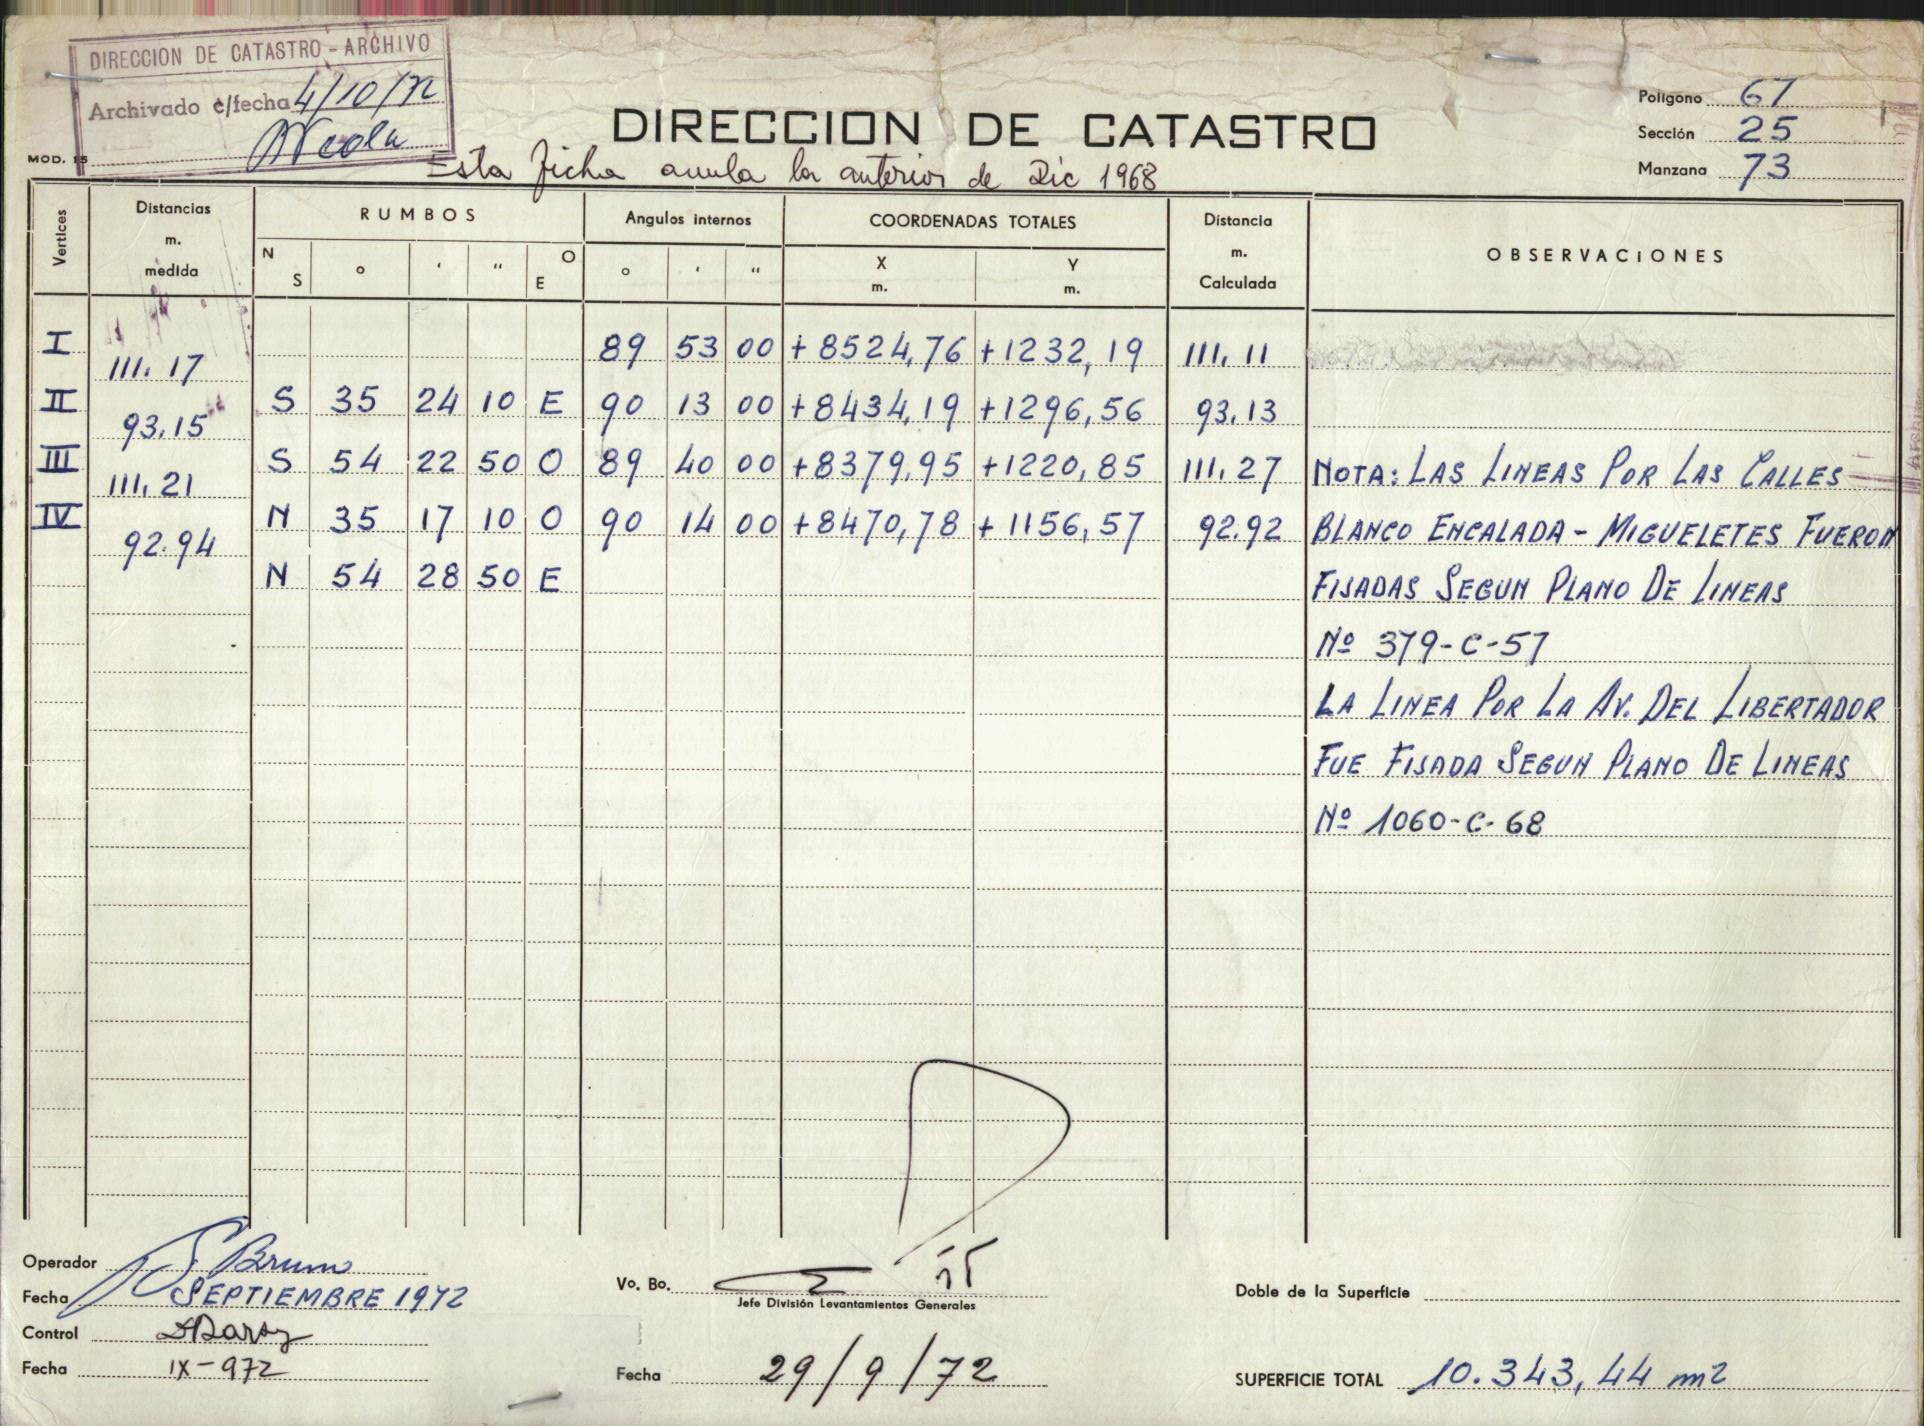 DIRECCION DE CATASTRO - ARCHIVO
Archivado c/fecha 4/10/72
MOD. 15
DIRECCION DE CATASTRO
Esta ficha anula la anterior de Dic 1968
Polígono 67
Sección 25
Manzana 73
Vertices
Distancias m. medida
RUMBOS
Angulos internos
COORDENADAS TOTALES
Distancia m. Calculada
OBSERVACIONES
N S ° ' " O E
° ' "
X m. Y m.
I 89 53 00 +8524,76 +1232,19 111.11
111.17
II S 35 24 10 E 90 13 00 +8434,19 +1296,56 93.13
93.15
III S 54 22 50 O 89 40 00 +8379,95 +1220,85 111.27 NOTA: LAS LINEAS POR LAS CALLES
111.21
IV N 35 17 10 O 90 14 00 +8470,78 +1156,57 92.92 BLANCO ENCALADA - MIGUELETES FUERON
92.94
N 54 28 50 E FIJADAS SEGUN PLANO DE LINEAS
Nº 379-C-57
LA LINEA POR LA AV. DEL LIBERTADOR
FUE FIJADA SEGUN PLANO DE LINEAS
Nº 1060-C-68
Operador Bruno
Fecha SEPTIEMBRE 1972
Control
Fecha IX-972
Vo. Bo.
Jefe División Levantamientos Generales
Fecha 29/9/72
Doble de la Superficie
SUPERFICIE TOTAL 10.343,44 m2